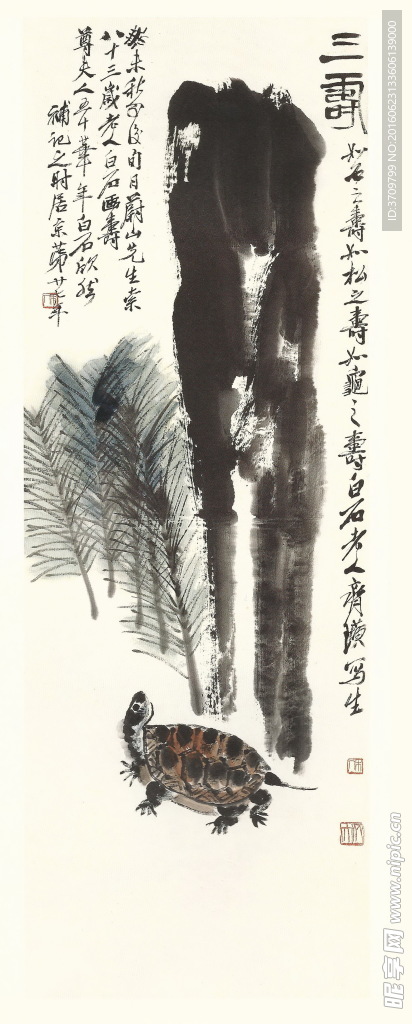 三壽
如石之壽如松之壽如龜之壽白石老人齊璜寫生
癸未秋分後旬日蔚山先生索
八十三歲老人白石畫壽
尊夫人五十華年白石欣然
補記之時居京第廿七年
NO:20160623133606139000
ID:3709799
昵享网 www.nipic.cn